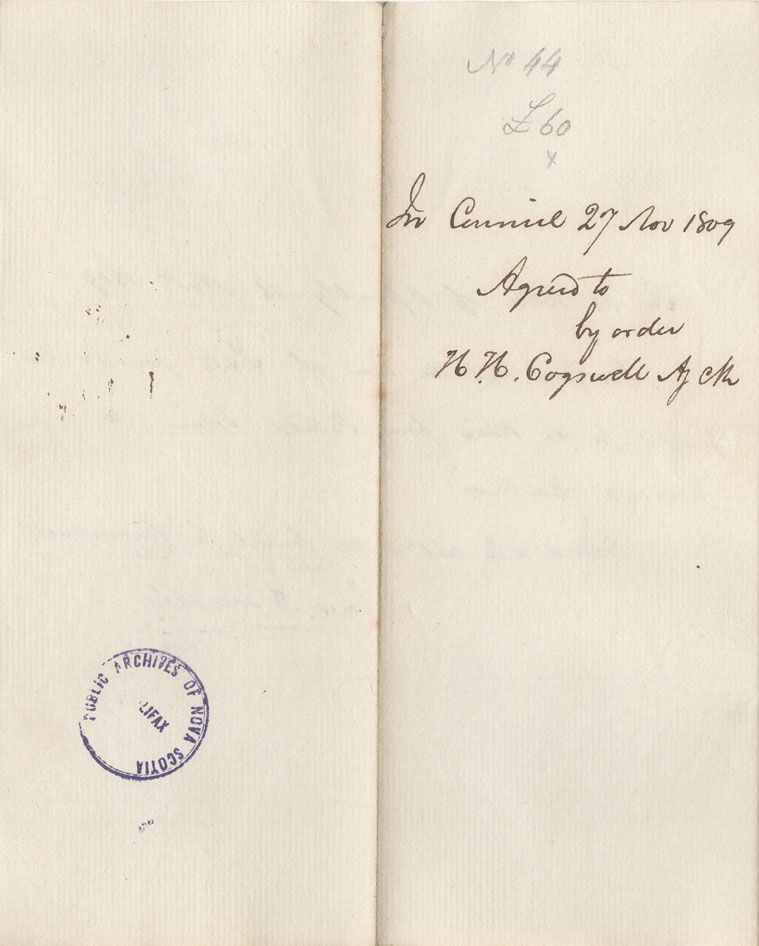 No 44
£ 60
x
In Council 27 Nov 1809
Agreed to
by order
H. H. Cogswell
PUBLIC ARCHIVES OF NOVA SCOTIA
LIFAX